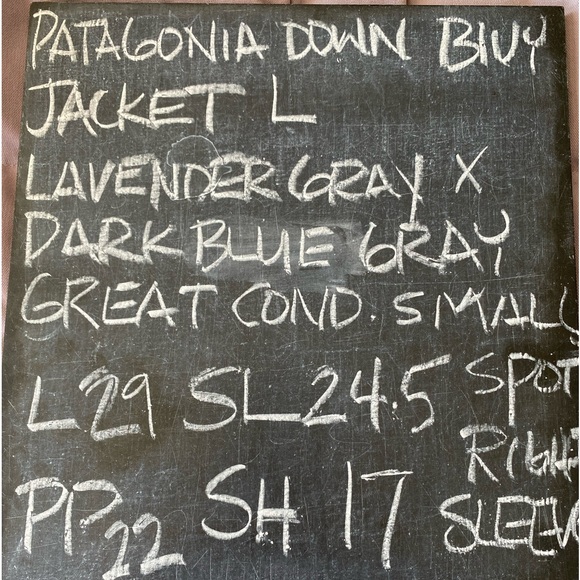 PATAGONIA DOWN BIVY
JACKET L
LAVENDER GRAY X
DARK BLUE GRAY
GREAT COND. SMALL
L29 SL 24.5 SPOT
RIGH
PP22 SH 17 SLEEV